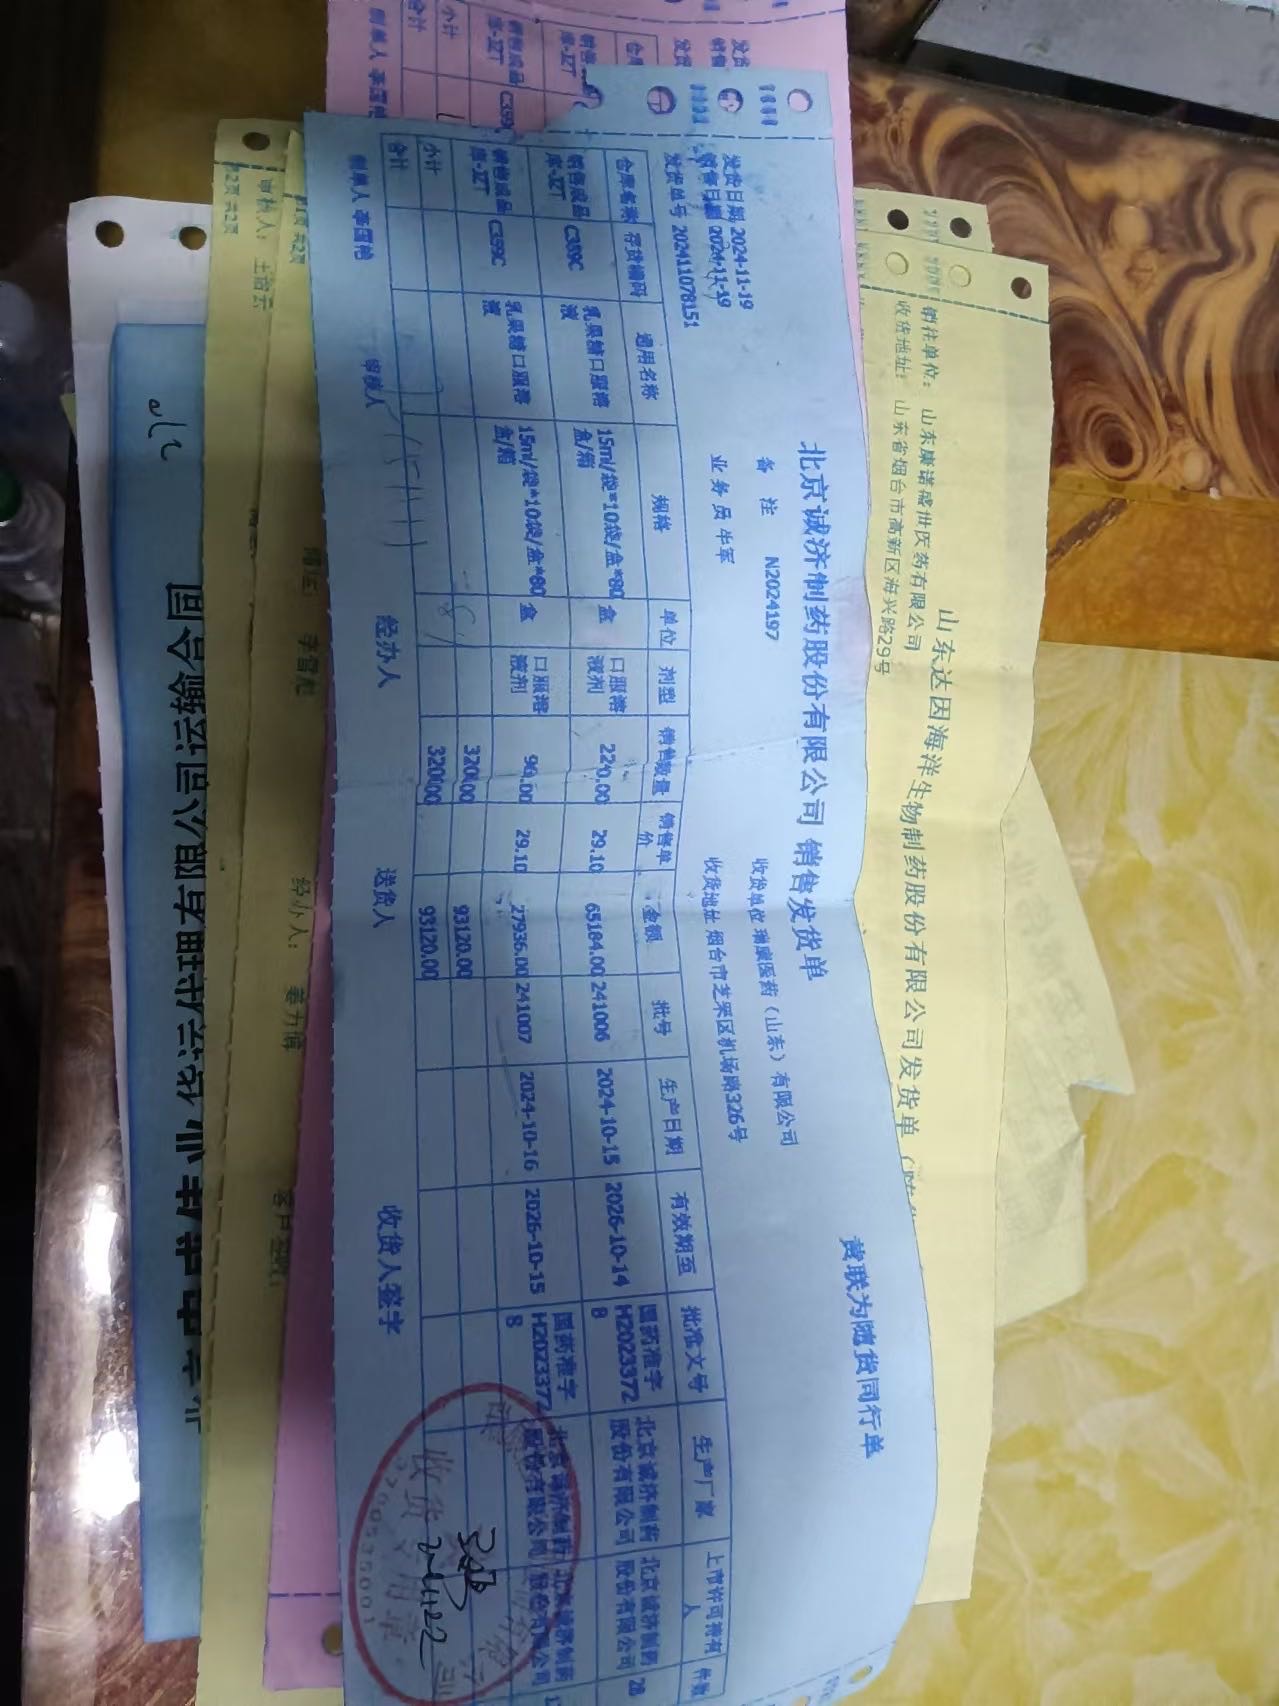 山东达因海洋生物制药股份有限公司发货单
销往单位：山东康诺盛世医药有限公司
收货地址：山东省烟台市高新区海兴路29号
黄联为随货同行单
北京诚济制药股份有限公司 销售发货单
发货日期 2024-11-19 备 注 N2024197 收货单位 瑞康医药（山东）有限公司
销售日期 2024-11-19 业务员 牛军 收货地址 烟台市芝罘区机场路326号
发货单号 20241107B151
仓库名称 存货编码 通用名称 规格 单位 剂型 销售数量 销售单价 金额 批号 生产日期 有效期至 批准文号 生产厂家 上市许可持有人 件数
销售成品库-JZT C359C 乳果糖口服溶液 15ml/袋*10袋/盒*80盒/箱 盒 口服溶液剂 29.10 241006 2024-10-15 2026-10-14 国药准字H20233728 北京诚济制药股份有限公司 北京诚济制药股份有限公司
销售成品库-JZT C359C 乳果糖口服溶液 15ml/袋*10袋/盒*80盒/箱 盒 口服溶液剂 29.10 27936.00 241007 2024-10-16 2026-10-15 国药准字H20233728
小计 320.00 93120.00
合计 320.00 93120.00
制单人 审核人 经办人 送货人 收货人签字
收货专用章
第2页 共2页
经办人：
运输合同